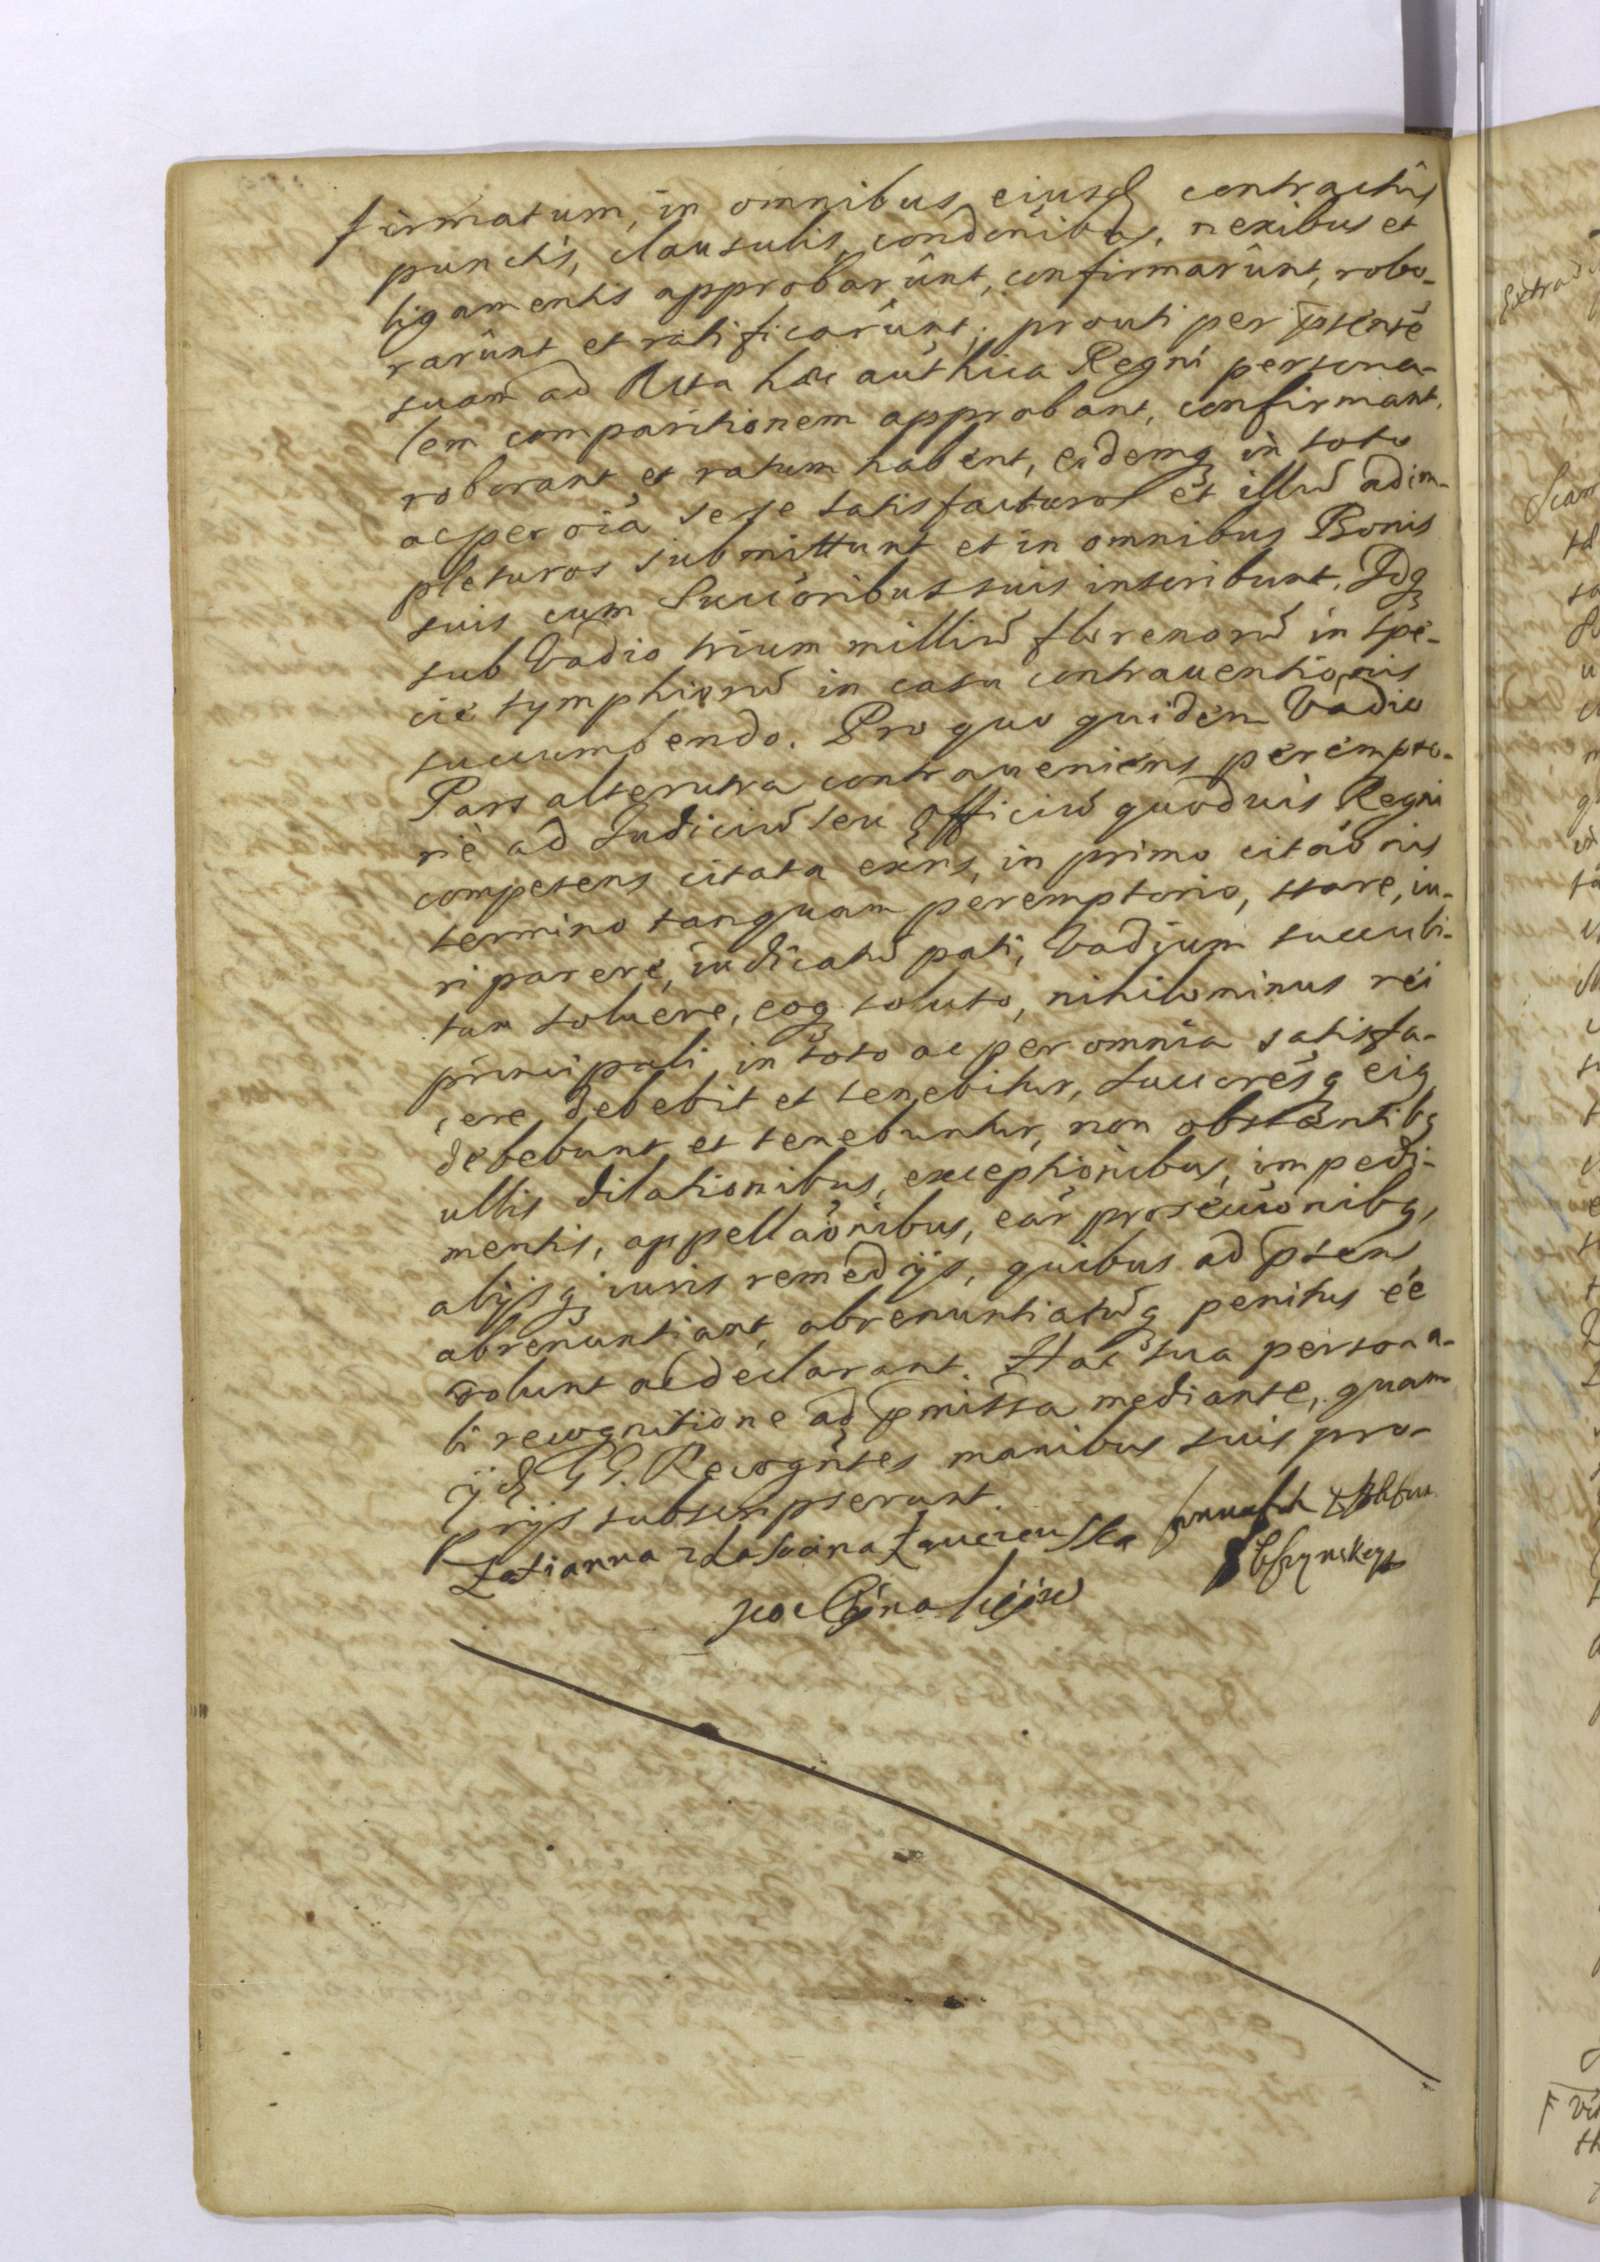 firmatum, in omnibus eiusd contractûs
punctis, clausulis, condōnibus, nexibus et
ligamentis approbarûnt, confirmarûnt, robo-
rarûnt et ratificarûnt, prouti per pstenté
suam ad Acta haec authica Regni persona-
lem comparitionem approbant, confirmant,
roborant et ratum habent, eidemq in toto
ac per oīa sese satisfacturos et illud adim-
pleturos submittunt et in omnibus Bonis
suis cum Succōribus suis inscribunt. Idq
sub Vadio trium milliū florenorū in spe-
cie tymphiorū in casu contrauentionis
succumbendo. Pro quo quidem Vadio
Pars alterutra contraueniens perempto-
riè ad Judiciū seu Officiū quoduis Regni
competens citata exñs, in primo citāōnis
termino tanquam peremptorio, stare, iu-
ri parere, iudicatū pati, Vadium succubi-
tum soluere, eoq soluto, nihilominus rei
principali in toto ac per omnia satisfa-
cere debebit et tenebitur, Succoresq eiq
debebunt et tenebuntur, non obstantibq
ullis dilationibus, exceptionibus, impedi-
mentis, appellāōnibus, eār prosecuōnibq,
alijsq iuris remedijs, quibus ad pstens
abrenuntiant, abrenuntiatūq penitus éé
volunt ac declarant. Hac sua persona-
li recognitione ad pmissa mediante, quam
ijd GG. Recogñtes manibus suis pro-
prijs subscripserunt.